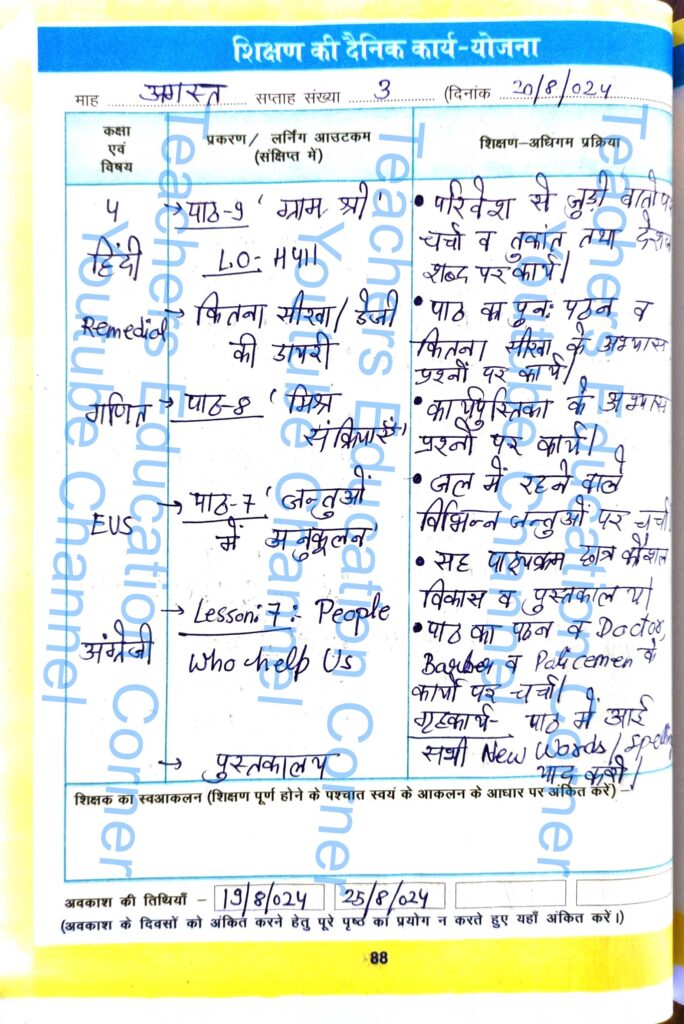 शिक्षण की दैनिक कार्य-योजना
माह अगस्त सप्ताह संख्या 3 (दिनांक 20/8/024
कक्षा एवं विषय
प्रकरण/ लर्निंग आउटकम (संक्षिप्त में)
शिक्षण-अधिगम प्रक्रिया
५
हिंदी
→ पाठ-9 'ग्राम श्री'
L.O- H411
Remedial
→ कितना सीखा/ डेजी
की डायरी
गणित
→ पाठ-8 'मिश्र
संक्रियाएँ'
EVS
→ पाठ-7 'जन्तुओं
में अनुकूलन'
अंग्रेजी
→ Lesson: 7:- People
Who help Us
→ पुस्तकालय
• परिवेश से जुड़ी
चर्चा व तुकांत तथा
शब्द पर कार्य।
• पाठ का पुनः पठन व
कितना सीखा के अभ्यास
प्रश्नों पर कार्य।
• कार्यपुस्तिका के अभ्यास
प्रश्नों पर कार्य।
• जल में रहने वाले
विभिन्न जन्तुओं पर चर्चा
• सह पाठ्यक्रम छात्र कौशल
विकास व
• पाठ का पठन व Doctor,
व Policemen के
कार्यों पर चर्चा।
गृहकार्य- पाठ में आई
सभी New Words/
याद करो।
शिक्षक का स्वआकलन (शिक्षण पूर्ण होने के पश्चात स्वयं के आकलन के आधार पर अंकित करें) –
अवकाश की तिथियाँ – 19/8/024 25/8/024
(अवकाश के दिवसों को अंकित करने हेतु पूरे पृष्ठ का प्रयोग न करते हुए यहाँ अंकित करें।)
88
Teachers Education Corner
Youtube Channel
Teachers Education Corner
Youtube Channel
Teachers Education Corner
Youtube Channel